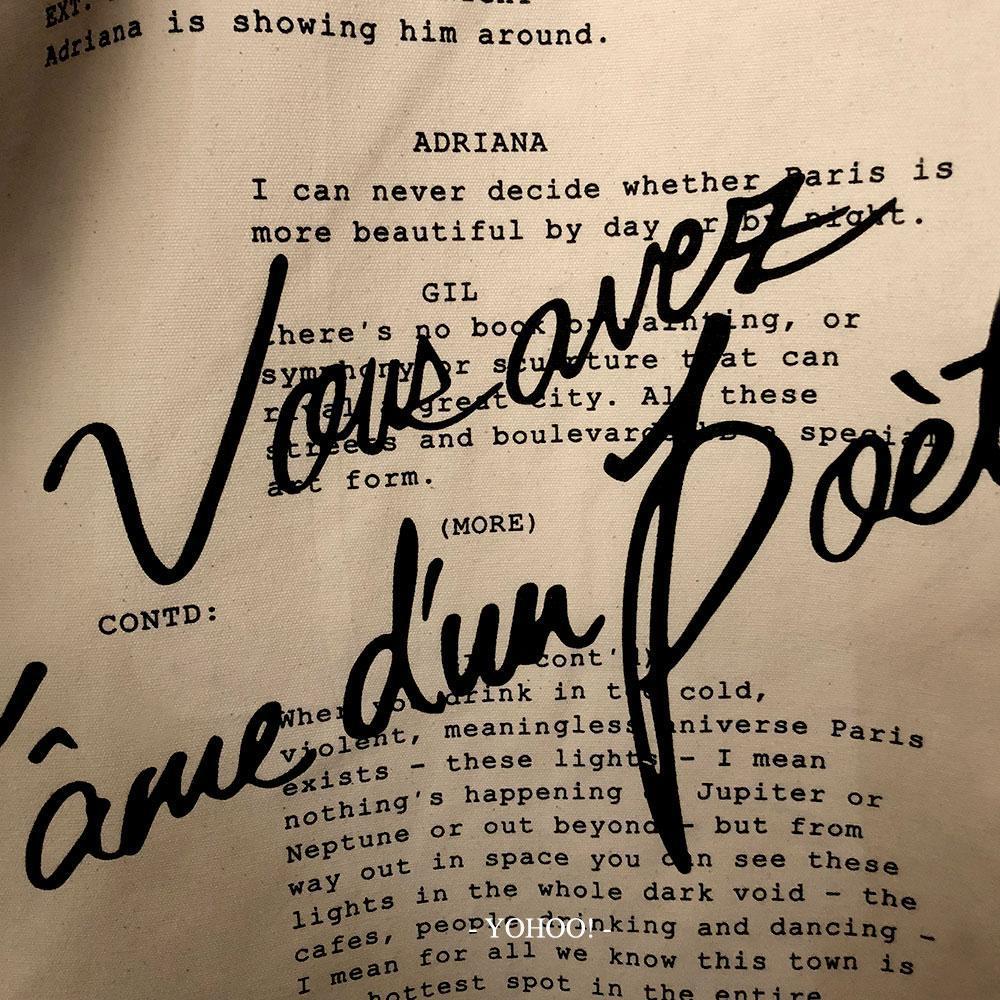 EXT.
Adriana is showing him around.
ADRIANA
I can never decide whether Paris is
more beautiful by day or by night.
GIL
there's no book or painting, or
symphony or sculpture that can
rival a great city. All these
streets and boulevards a special
art form.
(MORE)
CONTD:
cont'd)
When you drink in the cold,
violent, meaningless universe Paris
exists - these lights - I mean
nothing's happening Jupiter or
Neptune or out beyond - but from
way out in space you can see these
lights in the whole dark void - the
cafes, people drinking and dancing -
I mean for all we know this town is
hottest spot in the entire
Vous avez
âme d'un Poèt
- YOHOO! -